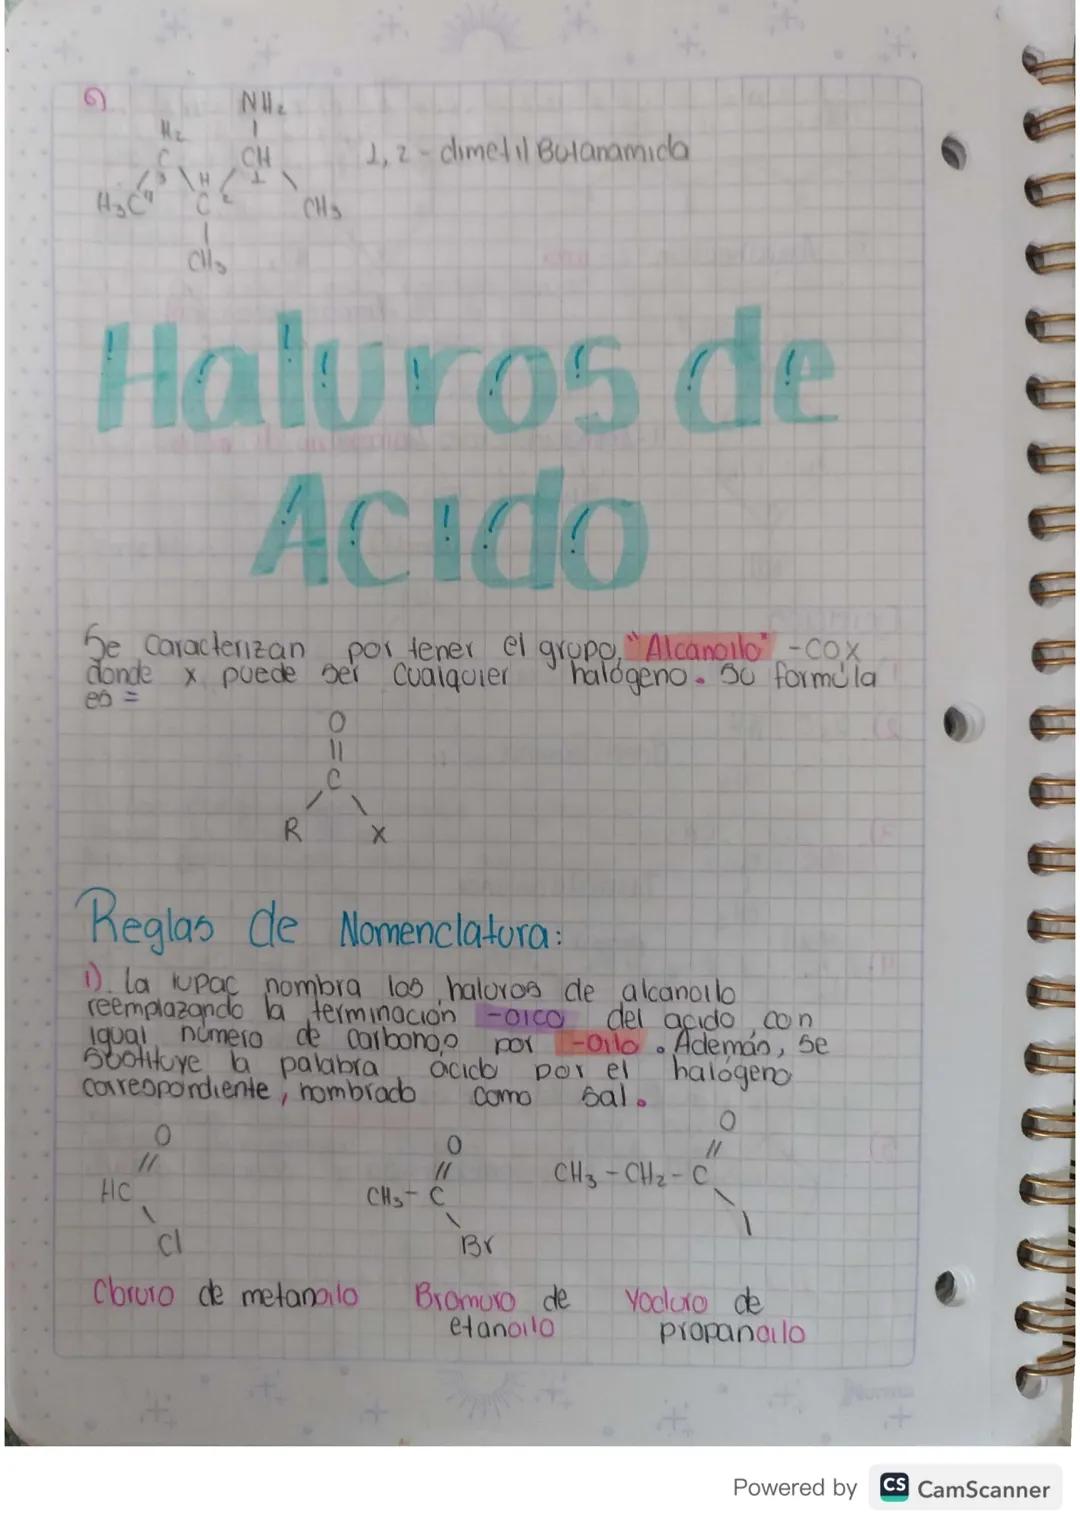 6)
NH₂
H₂
C
CH
1,2-dimetil Butanamida
3
H
1
H₃C
4
C
2
CH₃
CH₃
Haluros de
Acido
Se caracterizan por tener el grupo "Alcanoilo" -COX
donde x puede ser cualquier halógeno. Su formúla
es =
O
||
C
R
X
Reglas de Nomenclatura:
1). La IUPAC nombra los haluros de alcanoilo
reemplazando la terminación -oico del acido, con
igual número de carbonos por -oilo. Además, se
sustituye la palabra ácido por el halógeno
correspondiente, nombrado como sal.
O
//
HC
\
Cl
O
//
CH₃-C
\
Br
O
//
CH₃-CH₂-C
\
I
Cloruro de metanoilo
Bromuro de
etanoilo
Yoduro de
propanoilo
Norma
Powered by CS CamScanner